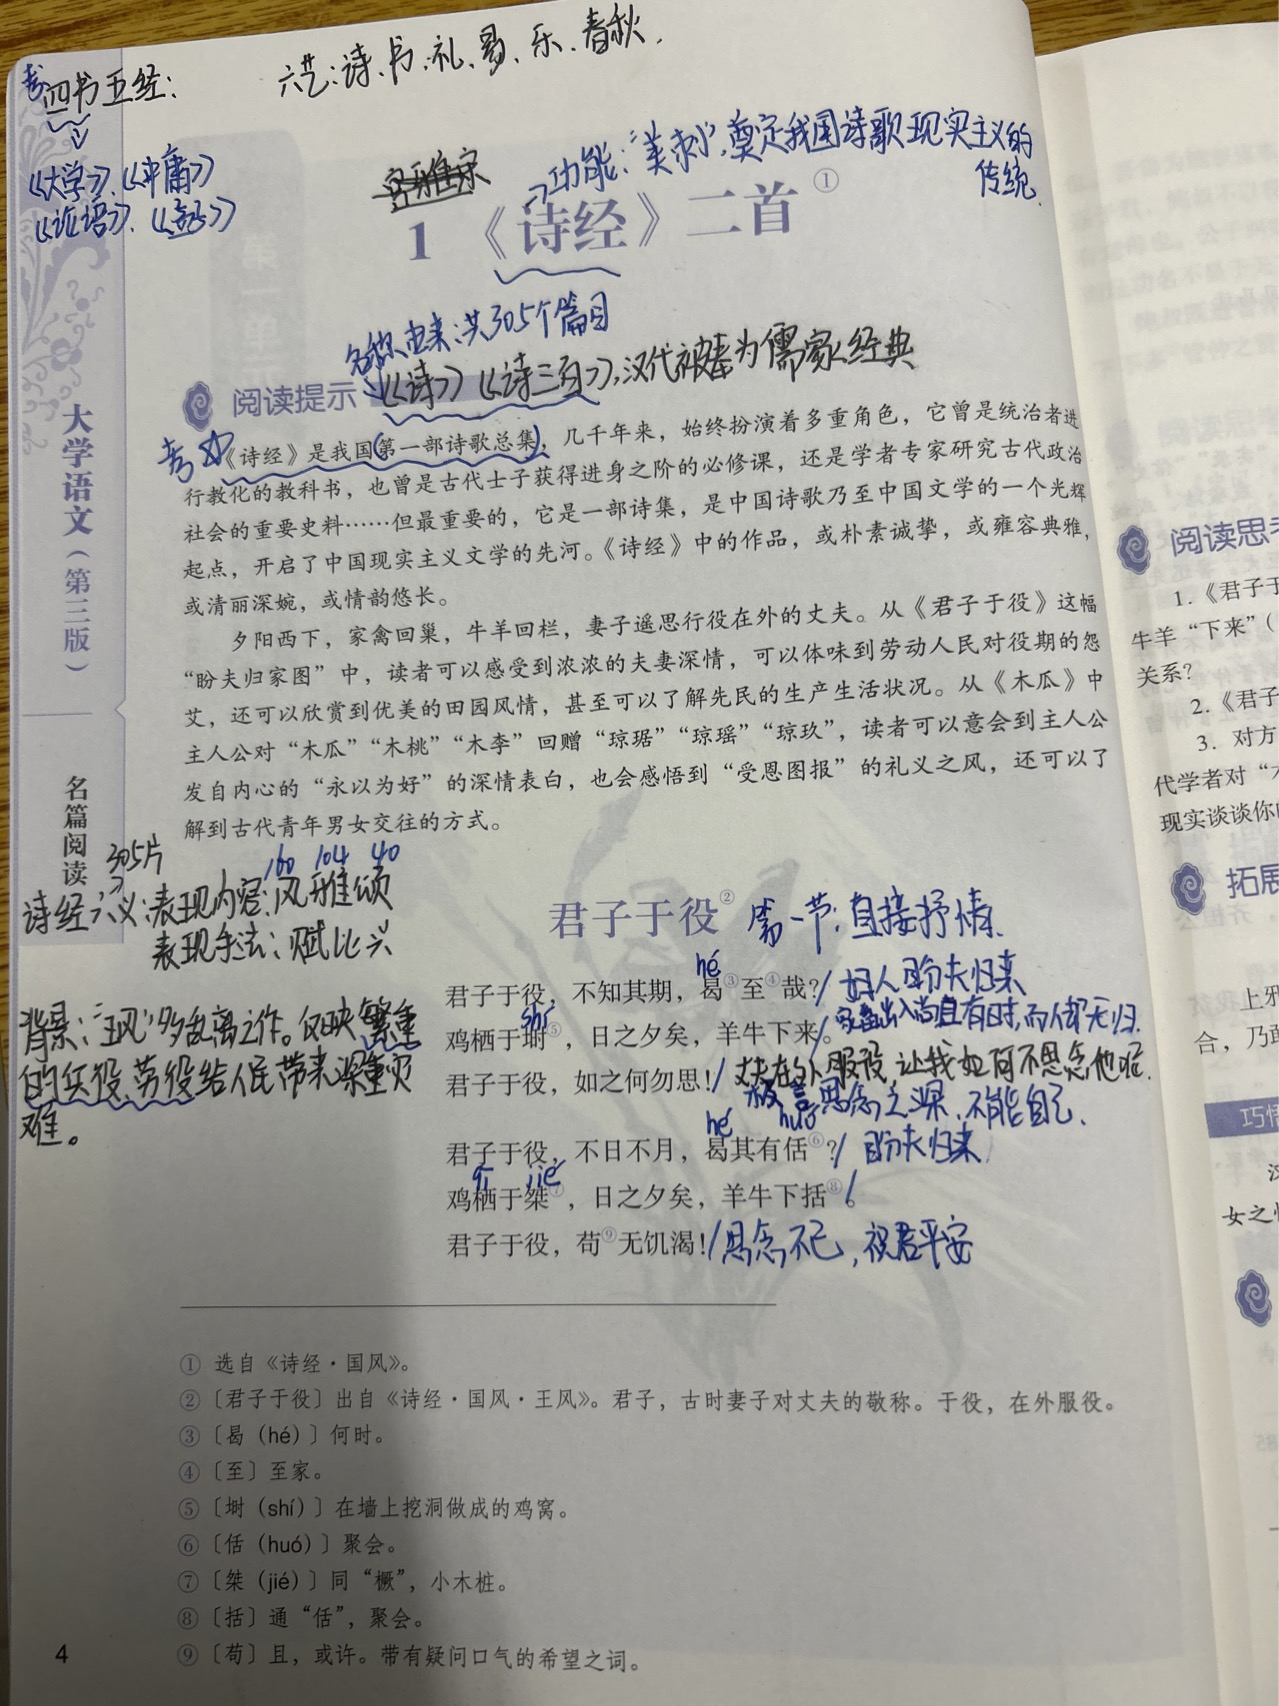 六艺：诗、书、礼、易、乐、春秋.
考
四书五经：
《大学》、《中庸》
《论语》、《孟子》
功能：“美刺”，奠定我国诗歌现实主义的
传统.
1 《诗经》二首①
名称由来：共305个篇目
阅读提示
《诗》《诗三百》，汉代被奉为儒家经典
考
《诗经》是我国第一部诗歌总集，几千年来，始终扮演着多重角色，它曾是统治者进
行教化的教科书，也曾是古代士子获得进身之阶的必修课，还是学者专家研究古代政治
社会的重要史料……但最重要的，它是一部诗集，是中国诗歌乃至中国文学的一个光辉
起点，开启了中国现实主义文学的先河。《诗经》中的作品，或朴素诚挚，或雍容典雅，
或清丽深婉，或情韵悠长。
夕阳西下，家禽回巢，牛羊回栏，妻子遥思行役在外的丈夫。从《君子于役》这幅
“盼夫归家图”中，读者可以感受到浓浓的夫妻深情，可以体味到劳动人民对役期的怨
艾，还可以欣赏到优美的田园风情，甚至可以了解先民的生产生活状况。从《木瓜》中
主人公对“木瓜”“木桃”“木李”回赠“琼琚”“琼瑶”“琼玖”，读者可以意会到主人公
发自内心的“永以为好”的深情表白，也会感悟到“受恩图报”的礼义之风，还可以了
解到古代青年男女交往的方式。
大学语文（第三版）
名篇阅读
305片
160 104 40
诗经六义：表现内容：风雅颂
表现手法：赋比兴
背景：“王风”多乱离之作。反映繁重
的兵役、劳役给人民带来深重灾
难。
君子于役② 第一节：直接抒情.
hé
君子于役，不知其期，曷③至④哉？/ 妇人盼夫归来
shí
鸡栖于埘⑤，日之夕矣，羊牛下来/。家畜出入尚且有时，而人却无归.
君子于役，如之何勿思！/ 丈夫在外服役，让我如何不思念他呢.
极言思念之深、不能自已.
hé huó
君子于役，不日不月，曷其有佸⑥？/ 盼夫归来
qī jié
鸡栖于桀⑦，日之夕矣，羊牛下括⑧/。
君子于役，苟⑨无饥渴！/思念不已，祝君平安
① 选自《诗经·国风》。
② 〔君子于役〕出自《诗经·国风·王风》。君子，古时妻子对丈夫的敬称。于役，在外服役。
③ 〔曷（hé）〕何时。
④ 〔至〕至家。
⑤ 〔埘（shí）〕在墙上挖洞做成的鸡窝。
⑥ 〔佸（huó）〕聚会。
⑦ 〔桀（jié）〕同“橛”，小木桩。
⑧ 〔括〕通“佸”，聚会。
⑨ 〔苟〕且，或许。带有疑问口气的希望之词。
4
阅读思考
1.《君子于
牛羊“下来”（
关系？
2.《君子
3. 对方
代学者对“木
现实谈谈你的
拓展
上邪
合，乃敢
巧悟
女之